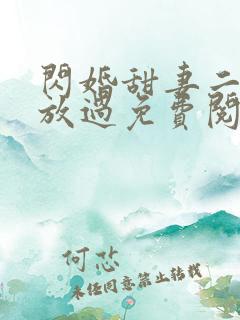 閃婚甜妻二
放過免費閱
何芯
未经同意禁止转载